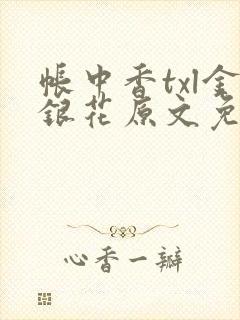 帐中香txl金
银花原文免
心香一瓣